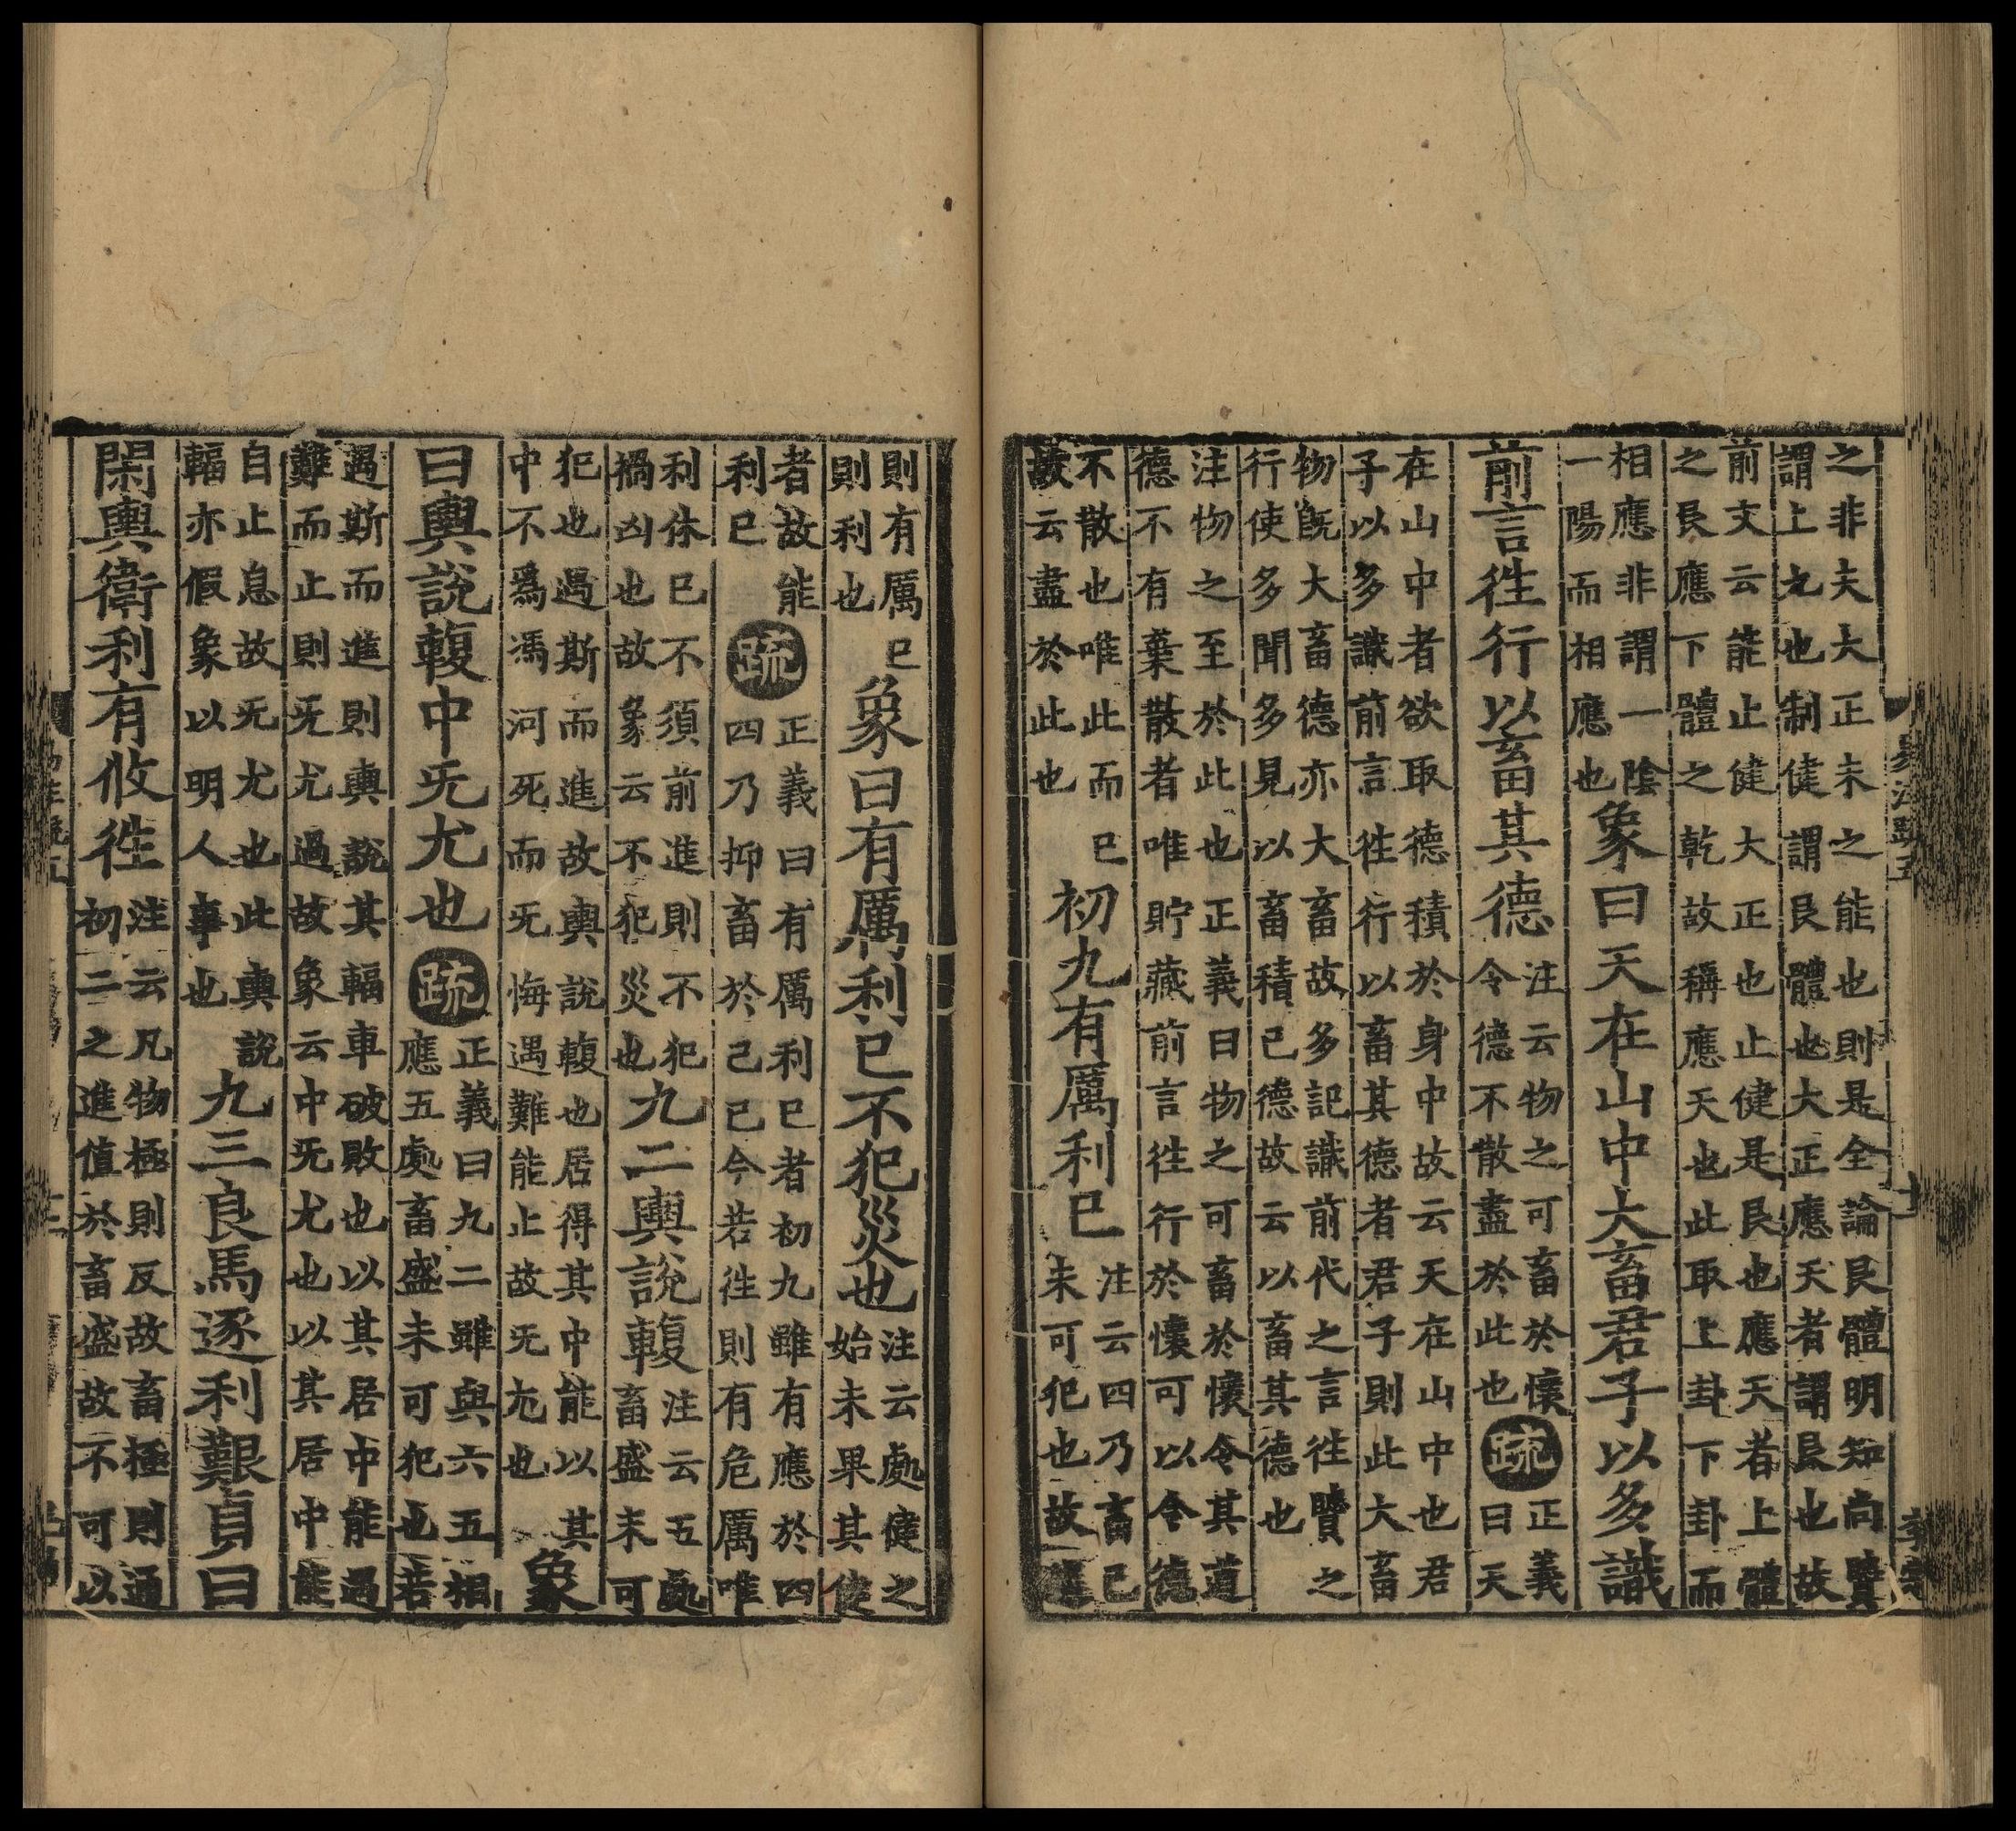 之非夫大正未之能也則是全論艮體明知向贒
謂上九也制健謂艮體也大正應天者謂艮也故
前文云能止健大正也止健是艮也應天者上體
之艮應下體之乾故稱應天也此取上卦下卦而
相應非謂一陰
一陽而相應也
象曰天在山中大畜君子以多識
前言徃行以畜其德
注云物之可畜於懷
令德不散盡於此也
疏
正義
曰天
在山中者欲取德積於身中故云天在山中也君
子以多識前言徃行以畜其德者君子則此大畜
物旣大畜德亦大畜故多記識前代之言徃贒之
行使多聞多見以畜積已德故云以畜其德也
注物之至於此也正義曰物之可畜於懷令其道
德不有棄散者唯貯藏前言徃行於懷可以令德
不散也唯此而已
故云盡於此也
初九有厲利已
注云四乃畜已
未可犯也故進
則有厲已
則利也
象曰有厲利已不犯災也
注云處健之
始未果其健
者故能
利已
疏
正義曰有厲利已者初九雖有應於四
四乃抑畜於己已今若徃則有危厲唯
利休已不須前進則不犯
禍凶也故象云不犯災也
九二輿說輹
注云五處
畜盛未可
犯也遇斯而進故輿說輹也居得其中能以其
中不爲馮河死而无悔遇難能止故无尤也
象
曰輿說輹中无尤也
疏
正義曰九二雖與六五相
應五處畜盛未可犯也若
遇斯而進則輿說其輻車破敗也以其居中能遇
難而止則无尤過故象云中无尤也以其居中能
自止息故无尤也此輿說
輻亦假象以明人事也
九三良馬逐利艱貞曰
閑輿衛利有攸徃
注云凡物極則反故畜極則通
初二之進值於畜盛故不可以